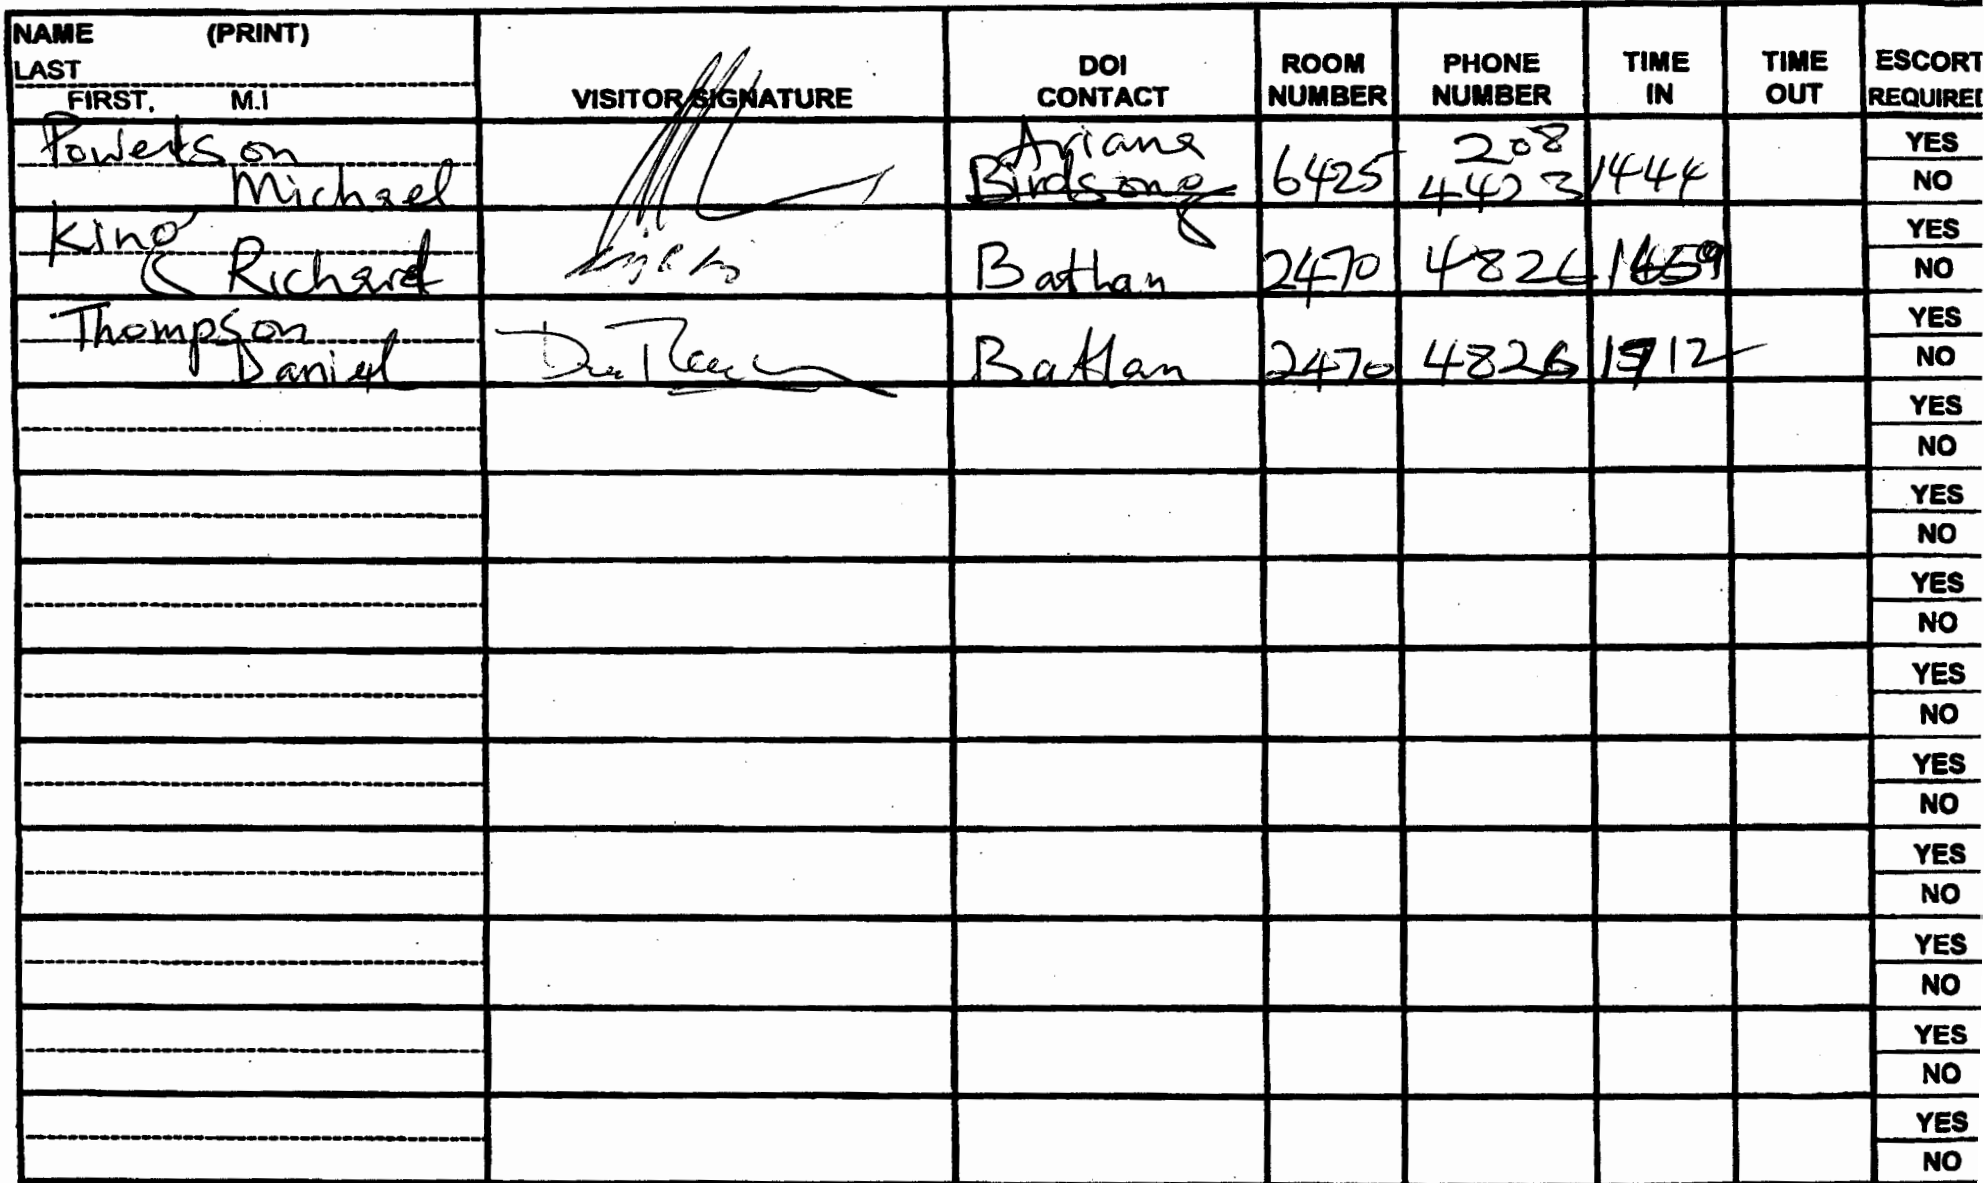 NAME (PRINT)
LAST
FIRST, M.I
VISITOR SIGNATURE
DOI
CONTACT
ROOM
NUMBER
PHONE
NUMBER
TIME
IN
TIME
OUT
ESCORT
REQUIRED
Michael
Ariana
Birdsong
6425
208
4423
1444
YES
NO
King
Richard
Bathan
2470
4826
YES
NO
Thompson
Daniel
Bathan
2470
4826
YES
NO
YES
NO
YES
NO
YES
NO
YES
NO
YES
NO
YES
NO
YES
NO
YES
NO
YES
NO